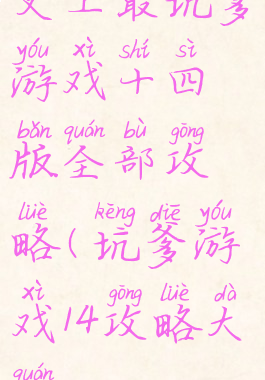 史上最坑爹
yóu xì shí sì
游戏十四
bǎn quán bù gōng
版全部攻
lüè kēng diē yóu
略(坑爹游
xì gōng lüè dà
戏14攻略大
quán